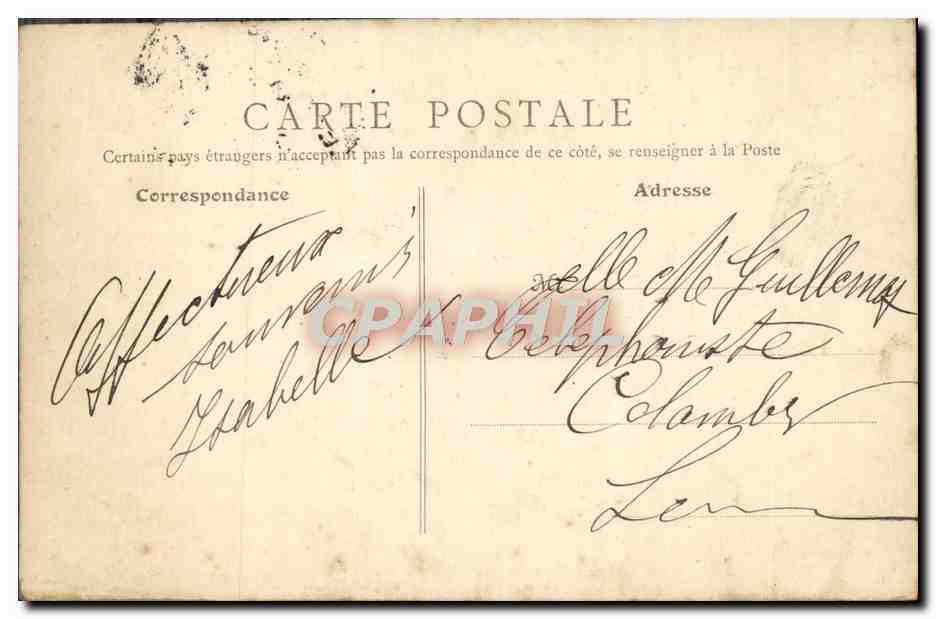 CARTE POSTALE
Certains pays étrangers n'acceptant pas la correspondance de ce côté, se renseigner à la Poste
Correspondance
Adresse
Affectueux
souvenir
Isabelle
Melle M Guillemoz
Téléphoniste
Colombes
CPAPHIL